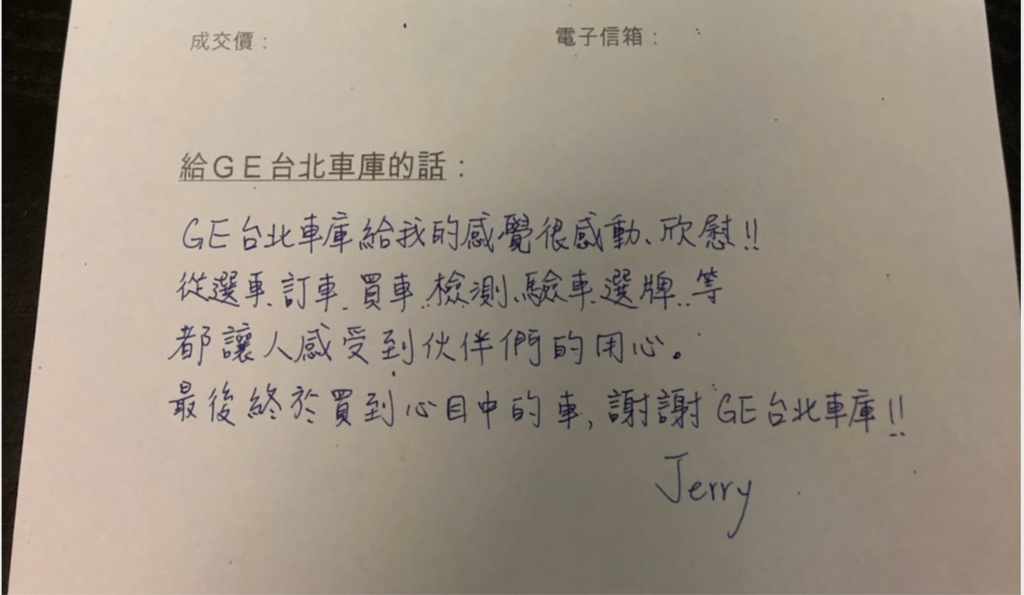 成交價：
電子信箱：
給GE台北車庫的話：
GE台北車庫給我的感覺很感動、欣慰!!
從選車、訂車、買車、檢測、驗車、選牌..等
都讓人感受到伙伴們的用心。
最後終於買到心目中的車，謝謝GE台北車庫!!
Jerry